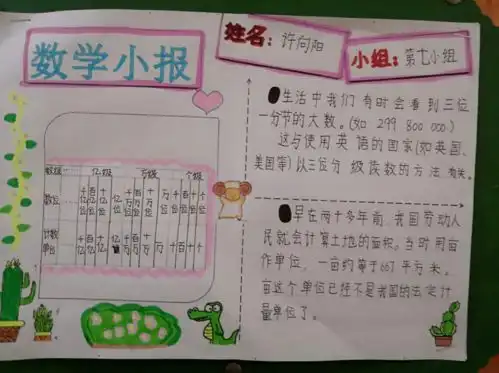 数学小报
姓名：许向阳
小组：第七小组
生活中我们有时会看到三位
一分节的大数。(如 299 800 000)
这与使用英语的国家(如英国、
美国等)以三位分级读数的方法有关。
早在两千多年前，我国劳动人
民就会计算土地的面积。当时用亩
作单位，一亩约等于667平方米。
亩这个单位已经不是我国的法定计
量单位了。
数级 亿级 万级 个级
数位 千亿位 百亿位 十亿位 亿位 千万位 百万位 十万位 万位 千位 百位 十位 个位
计数单位 千亿 百亿 十亿 亿 千万 百万 十万 万 千 百 十 个